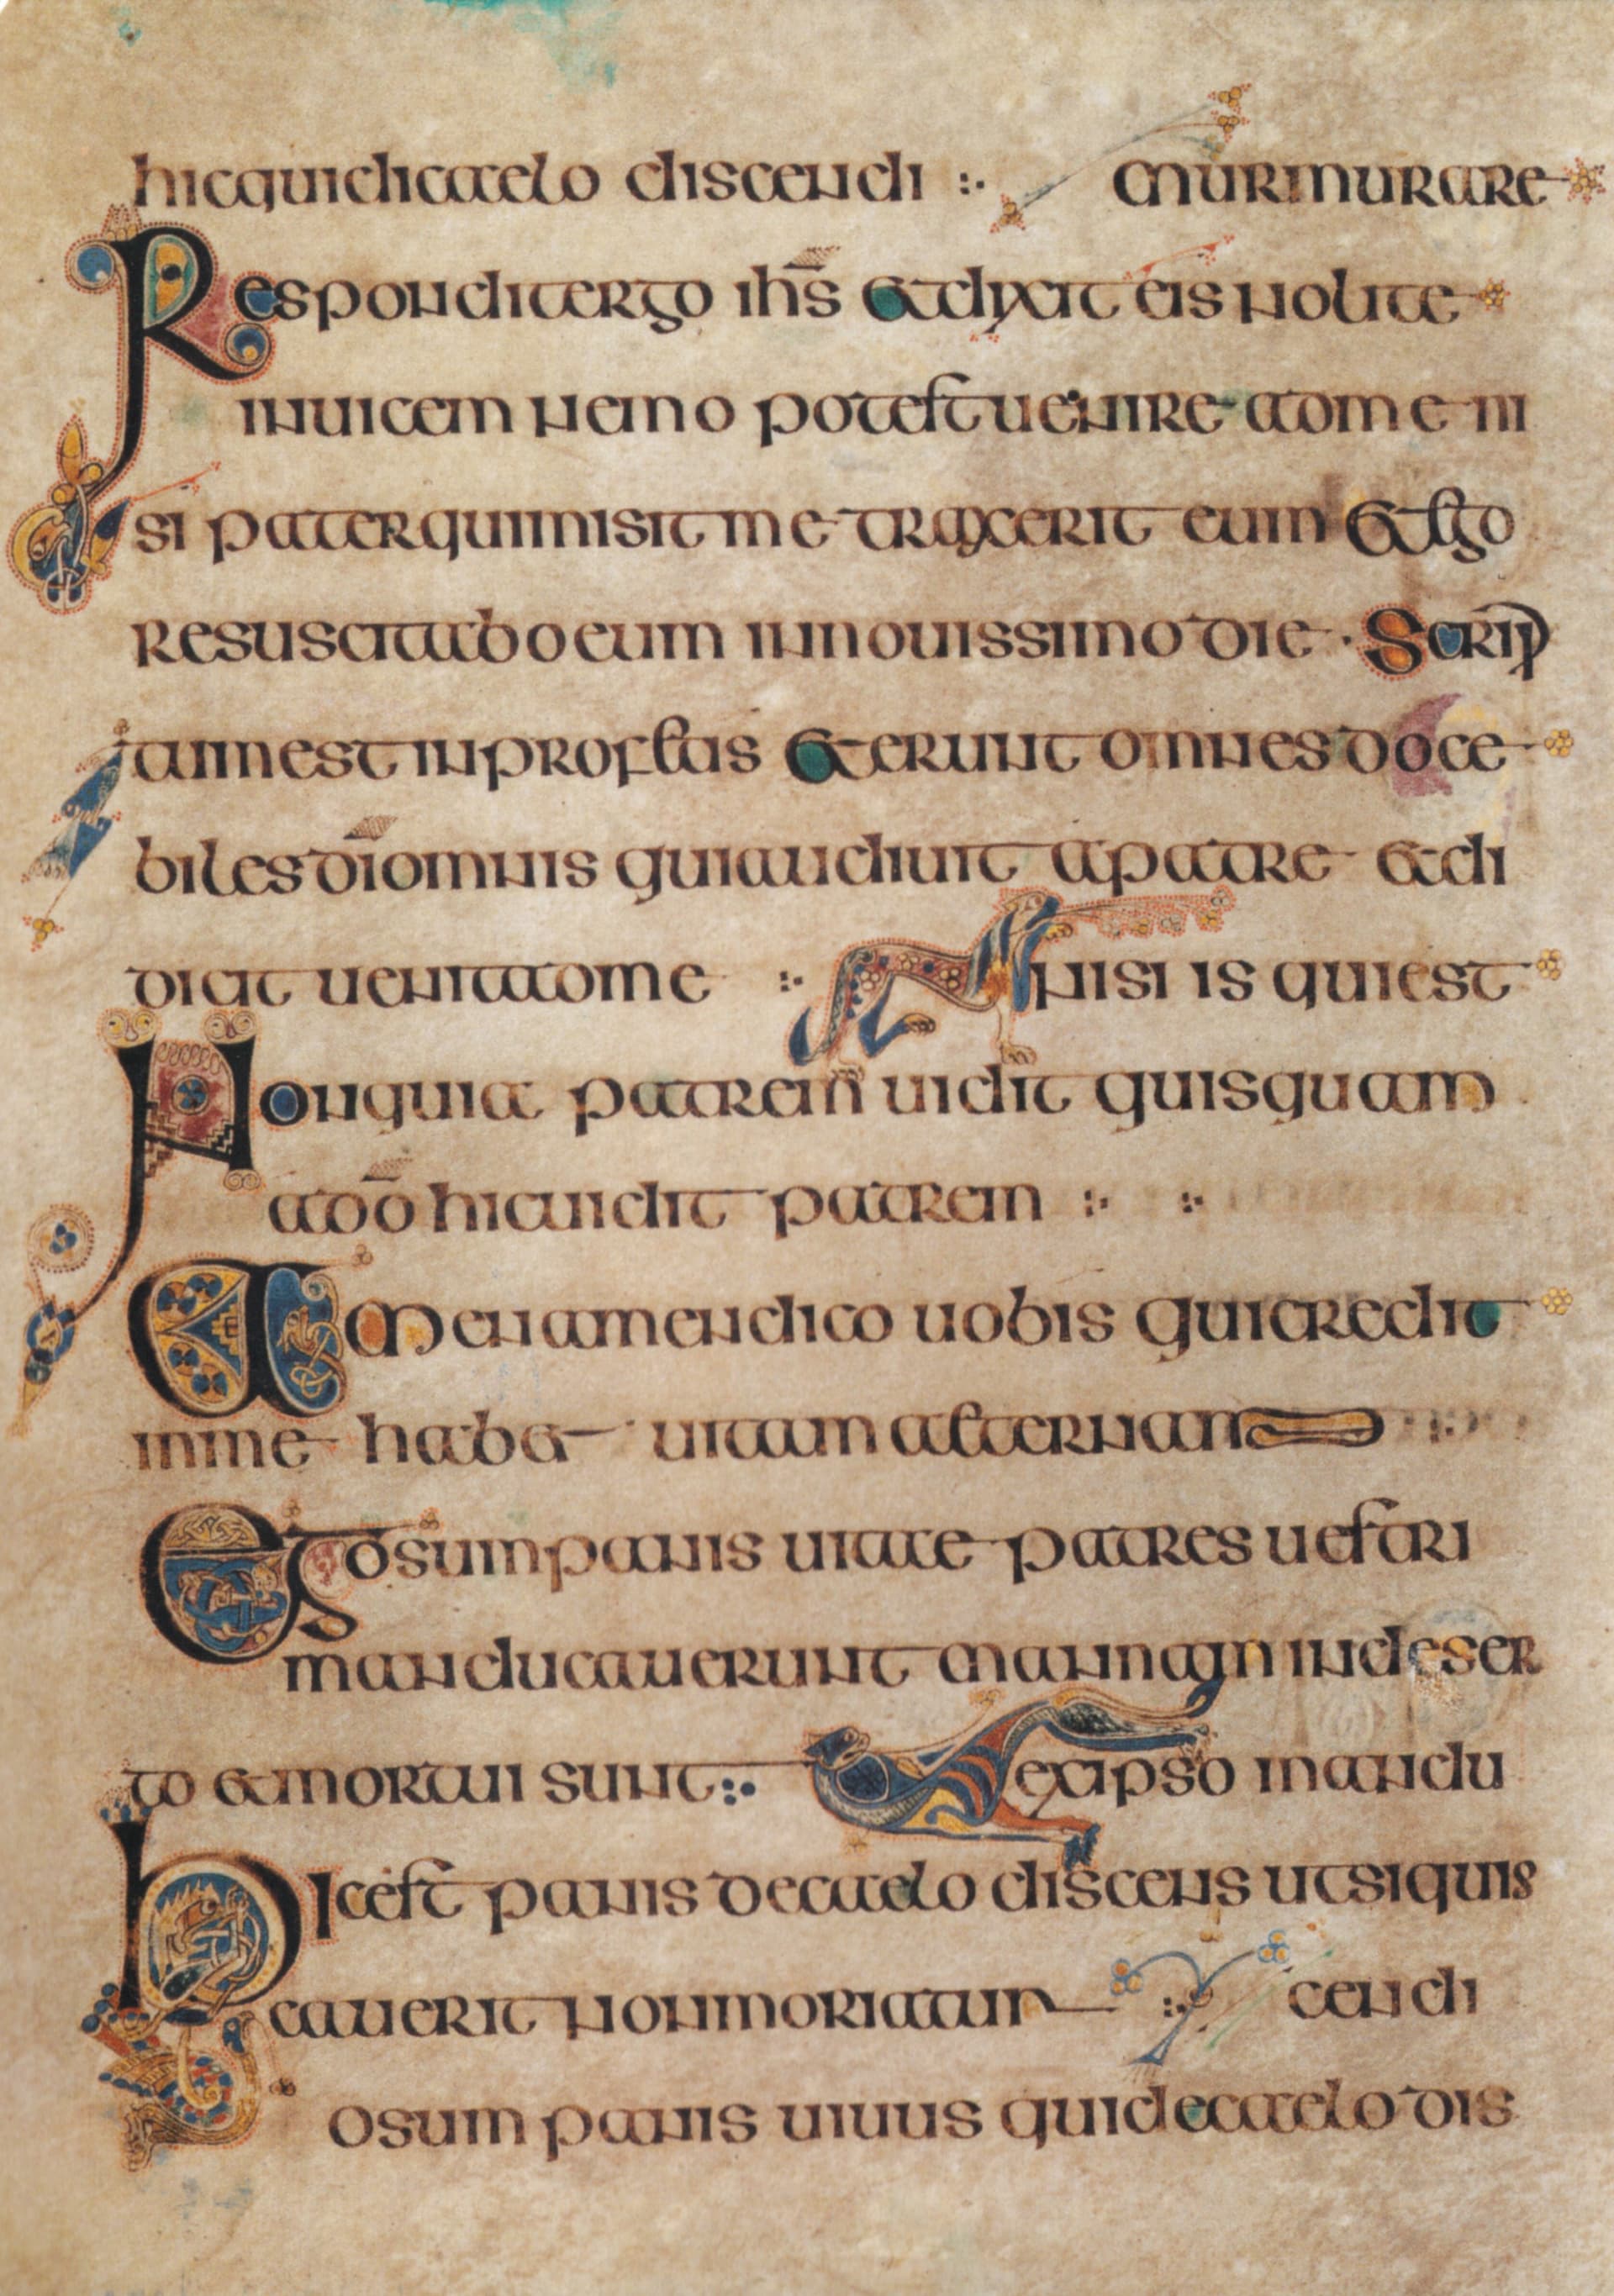 hic quia dicaelo discendi : murmurare
Respondit ergo ihs et dixit eis nolite
inuicem nemo potest uenire adome ni
si pater qui misit me traxerit eum et ego
resuscitabo eum in nouissimo die · Scrip
tum est in profetis et erunt omnes doce
biles di omnis qui audiuit a patre et di
dicit uenit adome : nisi is qui est
Non quia patrem uidit quisquam
a do hic uidit patrem : :
Amen amen dico uobis qui credit
in me habet uitam aeternam
Ego sum panis uitae patres uestri
manducauerunt mannam in deser
to et mortui sunt : ex ipso mandu
hic est panis de caelo discens ut si quis
cauerit non moriatur : cendi
o sum panis uiuus qui de caelo dis